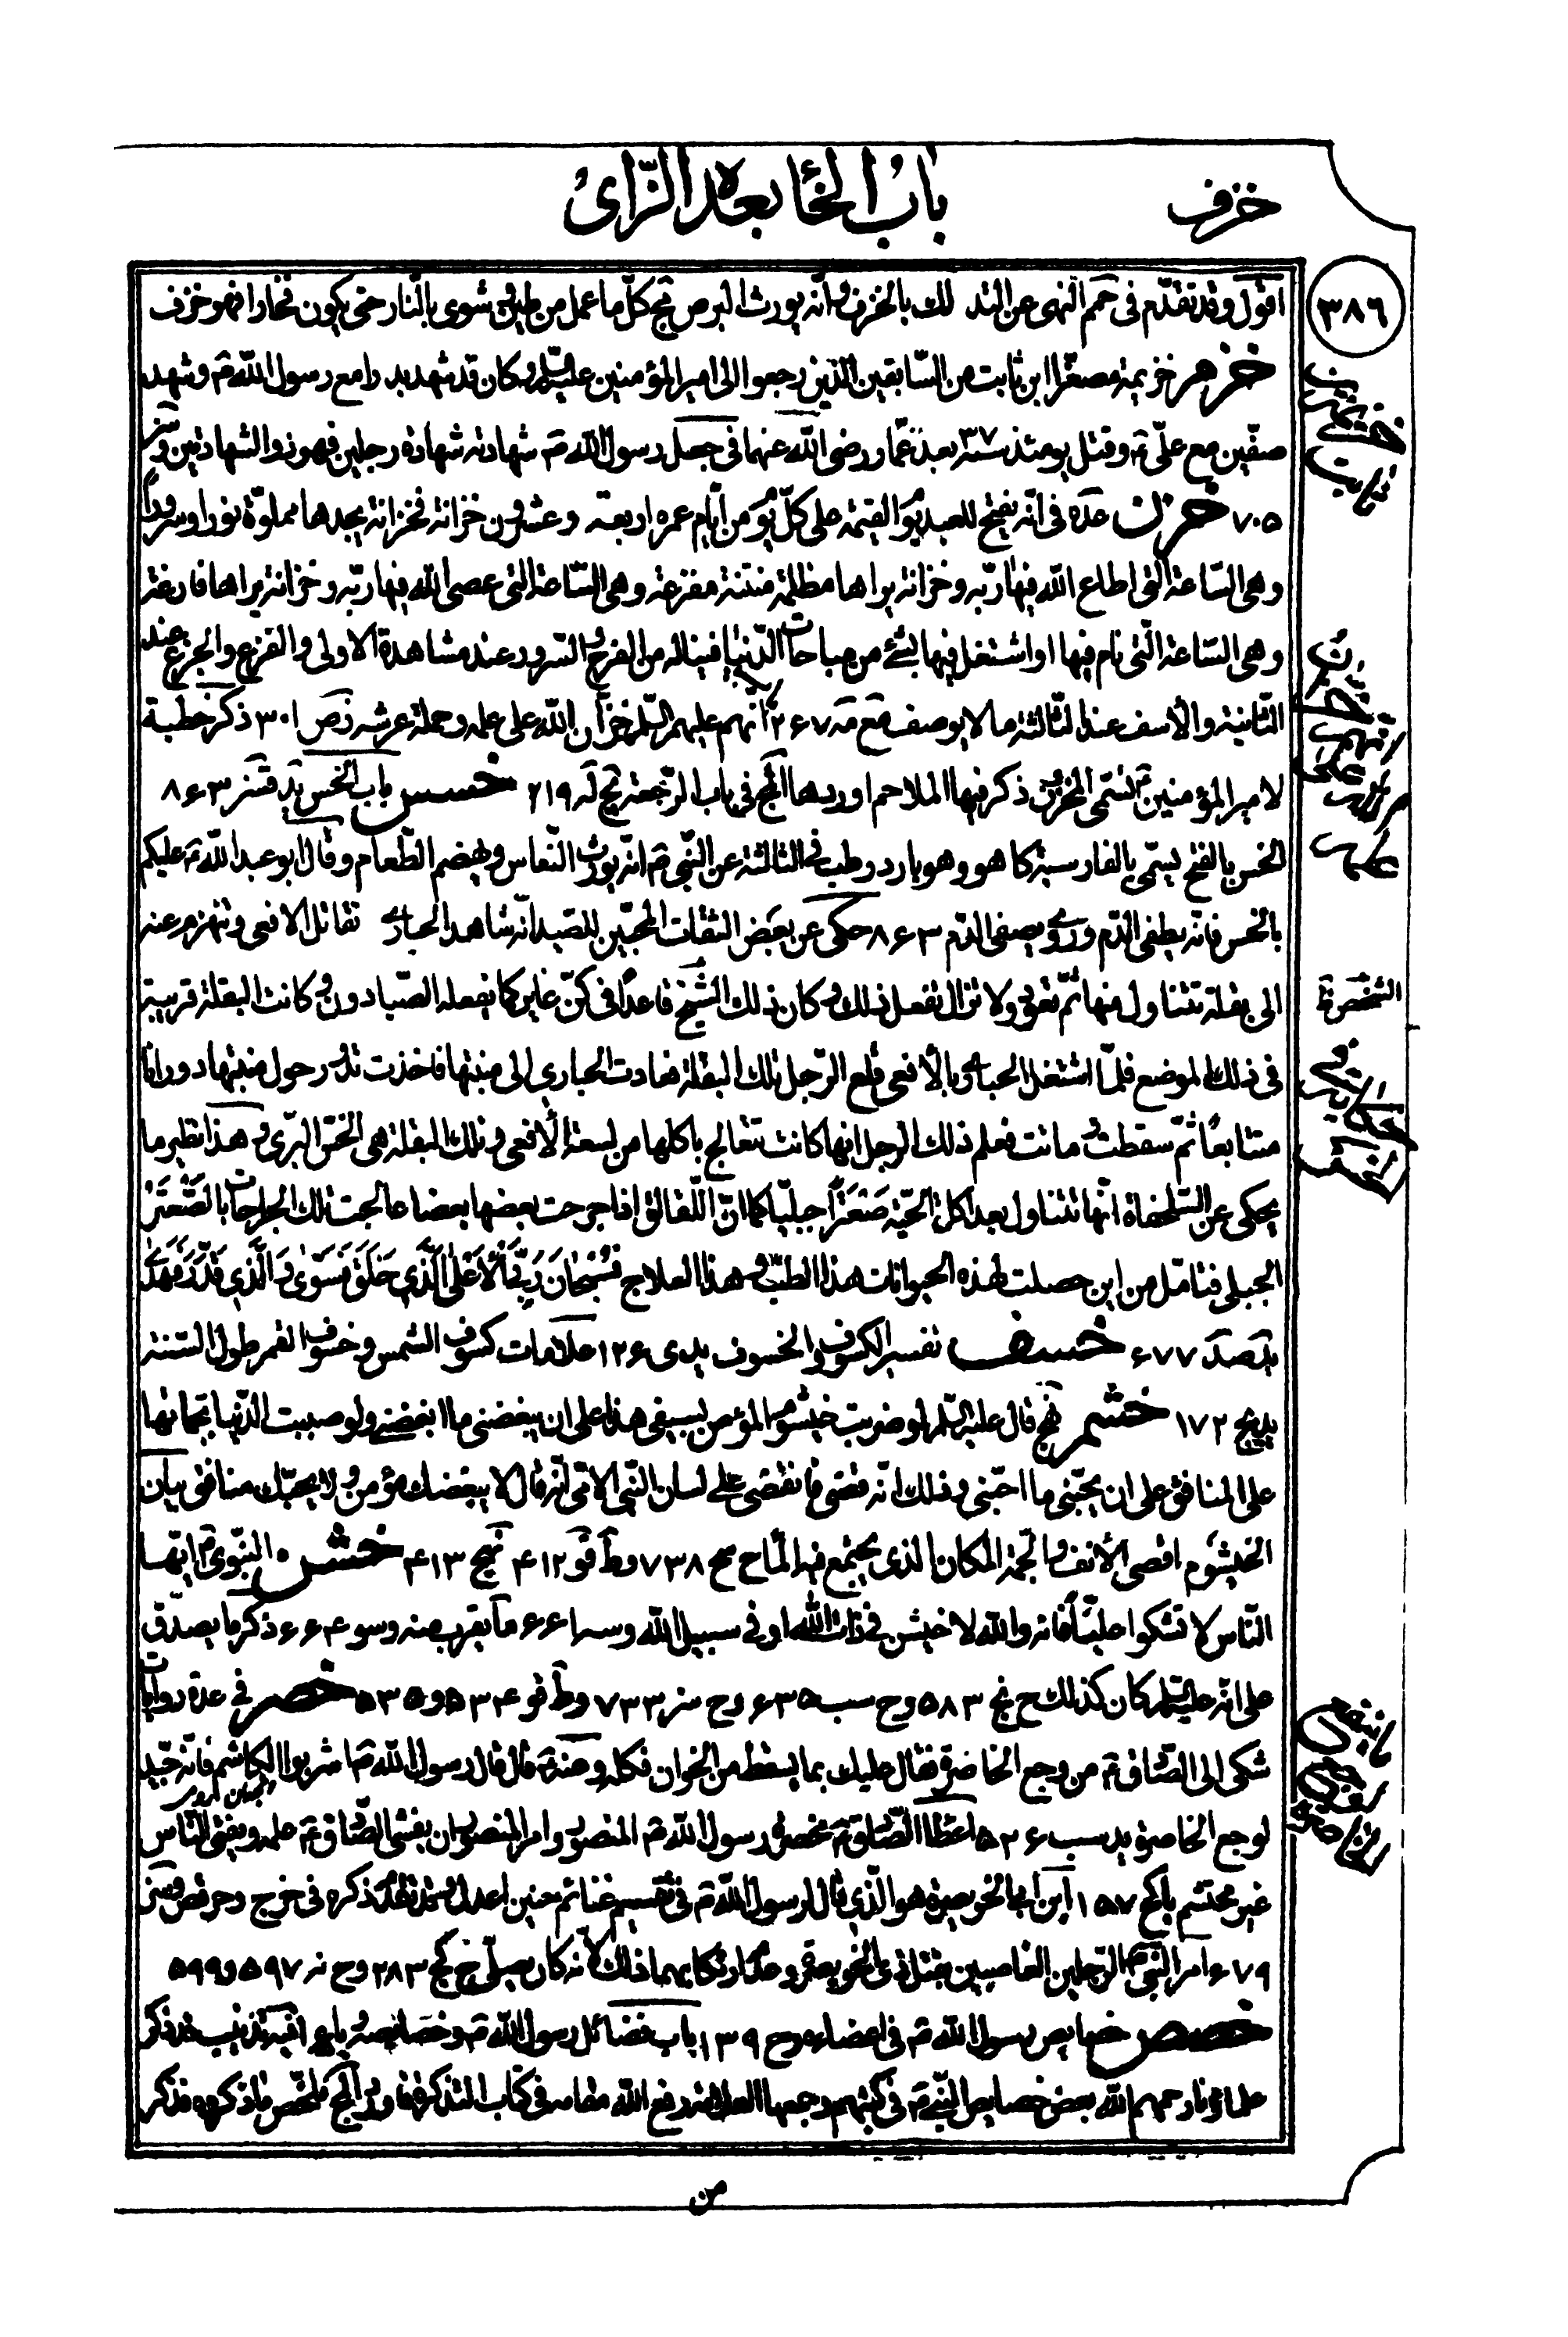 خزف
باب الخاء بعده الزاى
٣٨٦
اقول وقد تقدّم فى حمم النهى عن التدلك بالخزف وانّه يورث البرص مج كلّ ما عمل من طين وشوى بالنار حتى يكون فخارا فهو خزف
خزم خزيمة مصغّرا ابن ثابت من السّابقين الّذين رجعوا الى امير المؤمنين عليه السلم وكان قد شهد بدرا مع رسول الله ص وشهد
صفّين مع علىّ ع وقتل يومئذ سنه ٣٧ بعد عمّار رضى الله عنهما فى جعل رسول الله ص شهادته شهادة رجلين فهو ذو الشهادتين
٧٠٥ خزن عدّه فى انّه يفتح للعبد يوم القيمة على كلّ يوم من أيّام عمره اربعة وعشرون خزانة فخزانة يجدها مملوّة نورا وسرورا
وهى السّاعة الّتى اطاع الله فيها ربّه وخزانة يراها مظلمة منتنة مفزعة وهى السّاعة التى عصى الله فيها ربّه وخزانة يراها فارغة
وهى السّاعة الّتى نام فيها او اشتغل فيها بشئ من مباحات الدّنيا فيناله من الفرح والسرور عند مشاهدة الاولى والفزع والجزع عند
الثّانية والأسف عند الثّالثة ما لا يوصف مع مه ٢٦٧ انّهم عليهم السّلم خزّان الله على علمه وحملة عرشه زص ٣٠١ ذكر خطبة
لامير المؤمنين ع تسمّى المخزون ذكر فيها الملاحم اوردها المج فى باب الرّجعة يج له ٢١٩ خسس باب الخس يد قسز ٨٦٣
الخس بالفتح يسمّى بالفارسية كاهو وهو بارد رطب فى الثالثة عن النّبى ص انّه يورث النّعاس ويهضم الطّعام وقال ابو عبد الله ع عليكم
بالخس فانّه يطفى الدّم وروى يصفى الدّم ٨٦٣ حكى عن بعض الثقات المحبّين للصّيد انّه شاهد الحبارى تقاتل الافعى وتنهزم عنه
الى بقلة تتناول منها ثمّ تعود ولا تزال تفعل ذلك وكان ذلك الشّيخ قاعدا فى كنّ غاير كما يفعله الصّيادون وكانت البقلة قريبة
فى ذلك الموضع فلمّا اشتغل الحبارى بالأفعى قلع الرّجل تلك البقلة فعادت الحبارى الى منبتها فاخذت تدور حول منبتها دورانا
متتابعا ثمّ سقطت وماتت فعلم ذلك الرجل انها كانت تتعالج باكلها من لسعة الأفعى وتلك البقلة هى الخسّ البرّى وهذا نظير ما
يحكى عن السّلحفاة انّها تتناول بعد اكل الحيّة صَعْتَرا جبليّا كما انّ اللّقالق اذا جرحت بعضها بعضا عالجت تلك الجراحات بالصَّعْتَر
الجبلى فتامّل من اين حصلت لهذه الحيوانات هذا الطبّ وهذا العلاج فَسُبْحانَ رَبِّىَ الأَعْلَى الَّذِي خَلَقَ فَسَوّى وَالَّذِي قَدَّرَ فَهَدى
يد صد ٦٧٧ خسف تفسير الكسوف والخسوف يد ى ١٢٦ علامات كسوف الشمس وخسوف القمر طول السّنة
يد يج ١٧٢ خشم نهج قال عليه السّلم لو ضربت خيشوم المؤمن بسيفى هذا على ان يبغضنى ما ابغضنى ولو صببت الدّنيا بجماتها
على المنافق على ان يحبّنى ما احبّنى وذلك انّه قضى فانقضى على لسان النّبى الامّى انّه قال لا يبغضك مؤمن ولا يحبّك منافق بيان
الخيشوم اقصى الأنف والجمة المكان الذى يجتمع فيه الماء ح سح ٧٣٨ وط قو ٤١٢ نهج ٤١٣ خشن النبوى ايّها
النّاس لا تشكوا عليّا فانّه والله لاخيشن فى ذات الله او فى سبيل الله وسرا ٦٦٤ ما يقرب منه وسو ٦٦٤ ذكر ما يصدّق
على انّه عليه السّلم كان كذلك ح نج ٥٨٣ وح سب ٦٣٥ وح سز ٧٣٣ وط قو ٥٣٤ و ٥٣٥ خصر فى عدة روايات
شكى الى الصّادق ع من وجع الخاصرة فقال عليك بما يسقط من الخوان فكله وعنه ع قال قال رسول الله ص اشربوا الكاشم فانّه جيّد
لوجع الخاصرة يد سب ٥٣٦ اعطاء الصّادق ع مخصرة رسول الله ص المنصور وامر المنصور ان يفشى الصّادق ع علمه ويفتى النّاس
غير محتشم يا كح ١٥٧ ابن ابى الخويصرة هو الّذى قال لرسول الله ص فى تقسيم غنائم حنين اعدل وقد تقدّم ذكره فى خرج وحرقص
٦٧٩ امر النبى ص الرّجلين الغاصبين بقتل ذى الخويصرة وعدم ارتكابهما ذلك لانّه كان يصلّى ح كج ٢٨٣ وح نه ٥٩٧ و ٥٩٩
خصص خصايص رسول الله ص فى اعضاءه وح ١٣٩ باب فضائل رسول الله ص وخصائصه و يا فيه تذنيب قد ذكر
علماؤنا رحمهم الله بعض خصايص النّبى ص فى كتبهم وجمعها العلامة رفع الله مقامه فى كتاب التذكرة فاورد المج ملخّص ما ذكروه فذكر
خزيمة بن ثابت
انهم خزان الله على علمه
حكاية فى الخس
ما ينفع لوجع الخاصرة
من